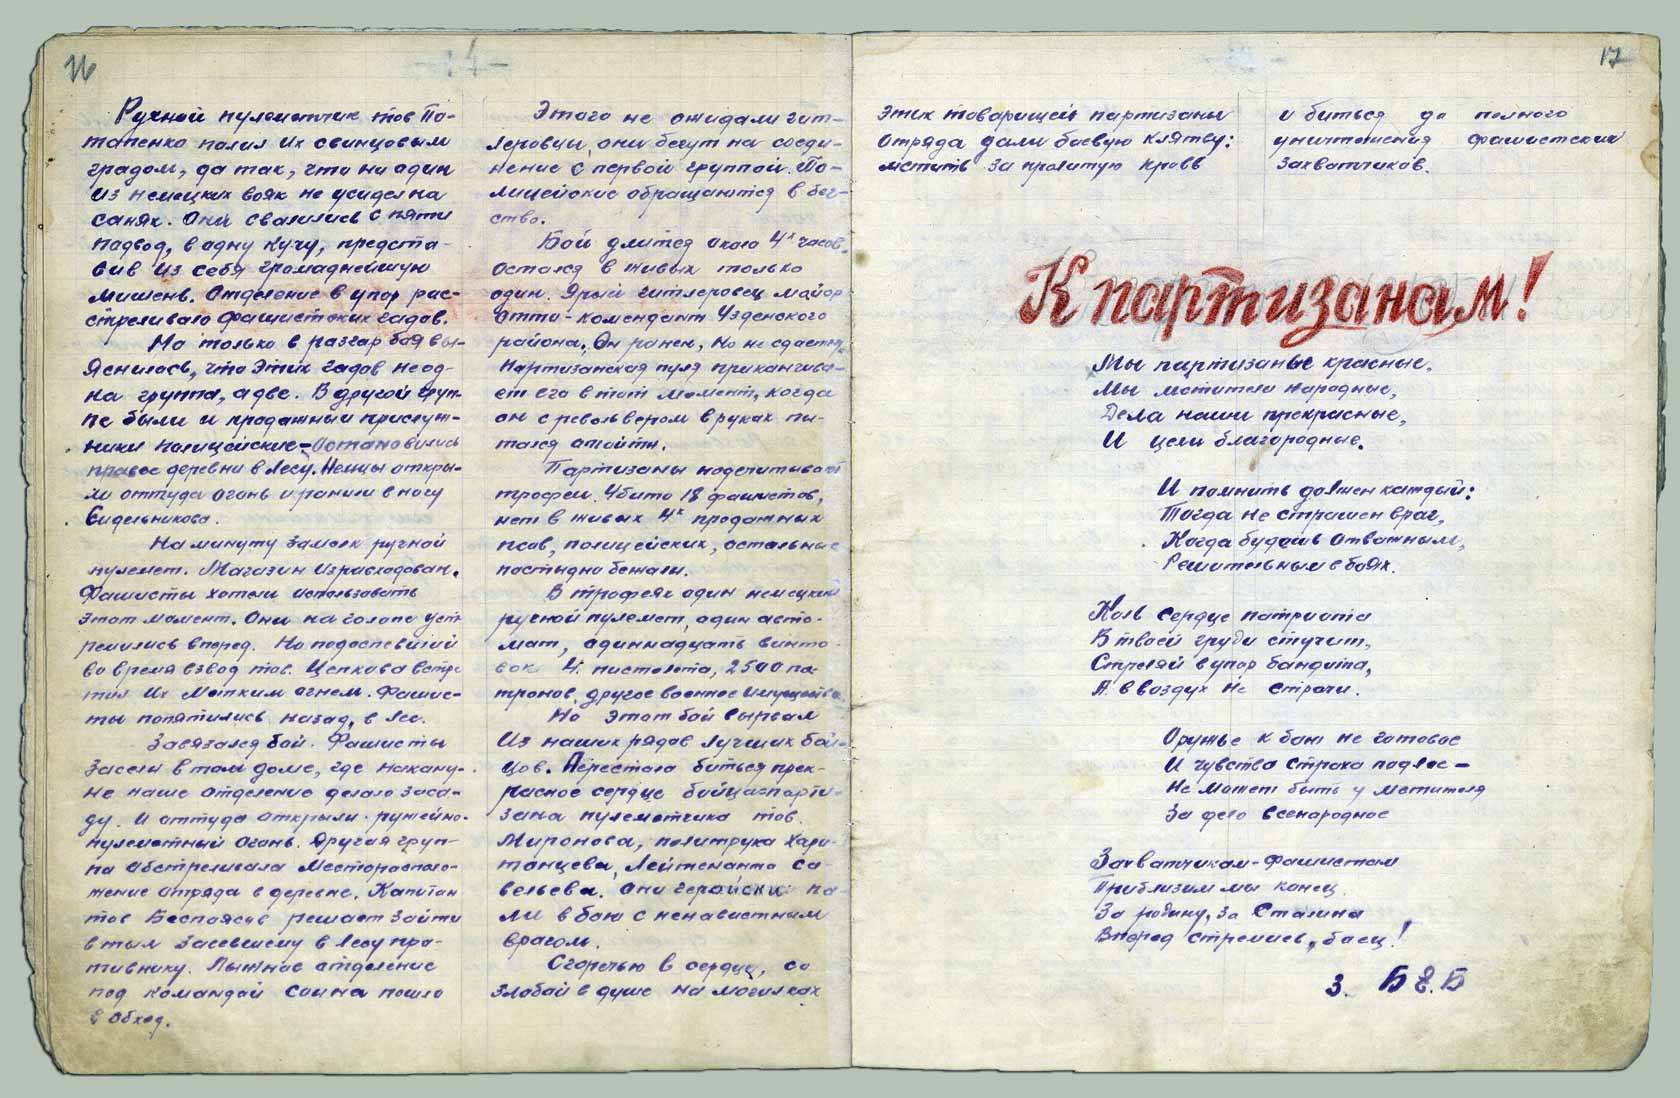 16
Ручной пулеметчик тов По-
тапенко палил их свинцовым
градом, да так, что ни один
из немецких вояк не усидел на
санях. Они свалились с пяти
подвод, в одну кучу, предста-
вив из себя громаднейшую
мишень. Отделение в упор рас-
стреливало фашистских гадов.
Но только в разгар боя вы-
яснилось, что этих гадов не од-
на группа, а две. В другой груп-
пе были и продажный прислуж-
ники полицейские-остановились
правее деревни в лесу. Немцы откры-
ли оттуда огонь и ранили в ногу
Сидельникова.
На минуту замолк ручной
пулемет. Магазин израсходован.
Фашисты хотели использовать
этот момент. Они на голопе уст-
ремились вперед. Но подоспевший
во время взвод тов. Цепкова встре
тил их метким огнем. Фашис-
ты попятились назад, в лес.
Завязался бой. Фашисты
засели в том доме, где накану-
не наше отделение делало заса-
ду. И оттуда открыли ружейно-
пулеметный огонь. Другая груп-
па обстреливала месторасполо-
жение отряда в деревне. Капитан
тов Беспоясов решает зайти
в тыл засевшему в лесу про-
тивнику. Лыжное отделение
под командой Саина пошло
в обход.
Этого не ожидали гит-
леровцы, они бегут на соеди-
нение с первой группой. По-
лицейские обращаются в бег-
ство.
Бой длится около 4х часов.
остался в живых только
один. Ярый гитлеровец майор
Отто-комендант Узденского
района. Он ранен, но не сдается.
Партизанская пуля приканчива-
ет его в тот момент, когда
он с револьвером в руках пы-
тался отойти.
Партизаны подсчитывают
трофеи. Убито 18 фашистов,
нет в живых 4х продажных
псов, полицейских, остальные
постыдно бежали.
В трофеях один немецкий
ручной пулемет, один авто-
мат, одиннадцать винто-
вок 4. пистолета, 2500 па-
тронов, другое военное имущество
Но этот бой вырвал
из наших рядов лучших бой-
цов. Перестало биться прек-
расное сердце бойца-парти-
зана пулеметчика тов.
Миронова, политрука Хари-
танцева, Лейтенанта Са-
вельева. Они геройски па-
ли в бою с ненавистным
врагом.
С горечью в сердце, со
злобой в душе на могилках
17
этих товарищей партизаны
отряда дали боевую клятву:
мстить за пролитую кровь
и биться до полного
уничтожения фашистских
захватчиков.
К партизанам!
Мы партизаны красные,
Мы мстители народные,
Дела наши прекрасные,
И цели благородные.
И помнить должен каждый:
Тогда не страшен враг,
Когда будешь отважным,
Решительным в боях.
Коль сердце патриота
В твоей груди стучит,
Стреляй в упор бандита,
А в воздух не строчи.
Оружье к бою не готовое
И чувства страха подлое-
Не может быть у мстителя
За дело всенародное
Захватчикам-фашистам
Приблизим мы конец.
За родину, за Сталина
Вперед стремись, боец!
З. Б Е. Б